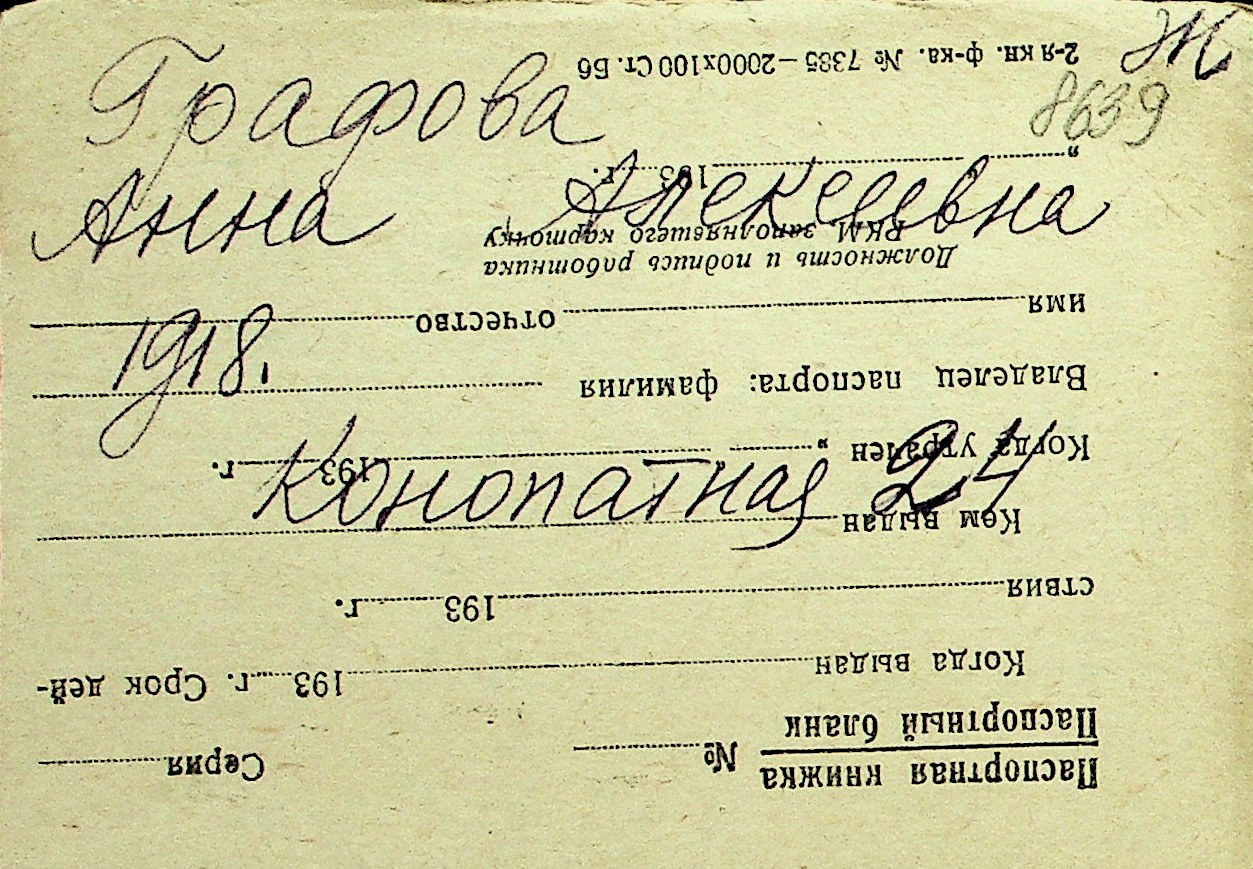 Ж
8639
Графова
Анна Алексеевна
1918
Конопатная 24
Паспортная книжка
Паспортный бланк
№ Серия
Когда выдан 193 г. Срок дей-
ствия 193 г.
Кем выдан
Когда утрачен „ 193 г.
Владелец паспорта: фамилия
имя отчество
Должность и подпись работника
РКМ заполнявшего карточку
„ 193 г.
2-я кн. ф-ка. № 7385—2000х100 Ст. Бб